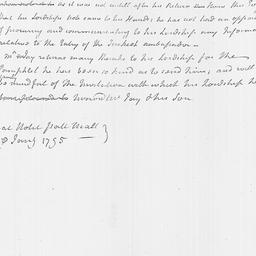 as it was not untill after his return from
that his Lordships note came to his Hands; he has not had an oppor
of procuring and communicating to his Lordship any Informa
relative to the Entry of the Turkish ambassador.
Mr returns many thanks to his Lordship for the
Pamphlet he has been so kind as to send him; and will
mindful of the Invitation with which his Lordship h
honored him by his Son.
Hotel Pall Mall
Jany 1795